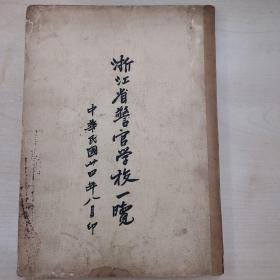 浙江省警官学校一覽
中華民國廿四年八月印